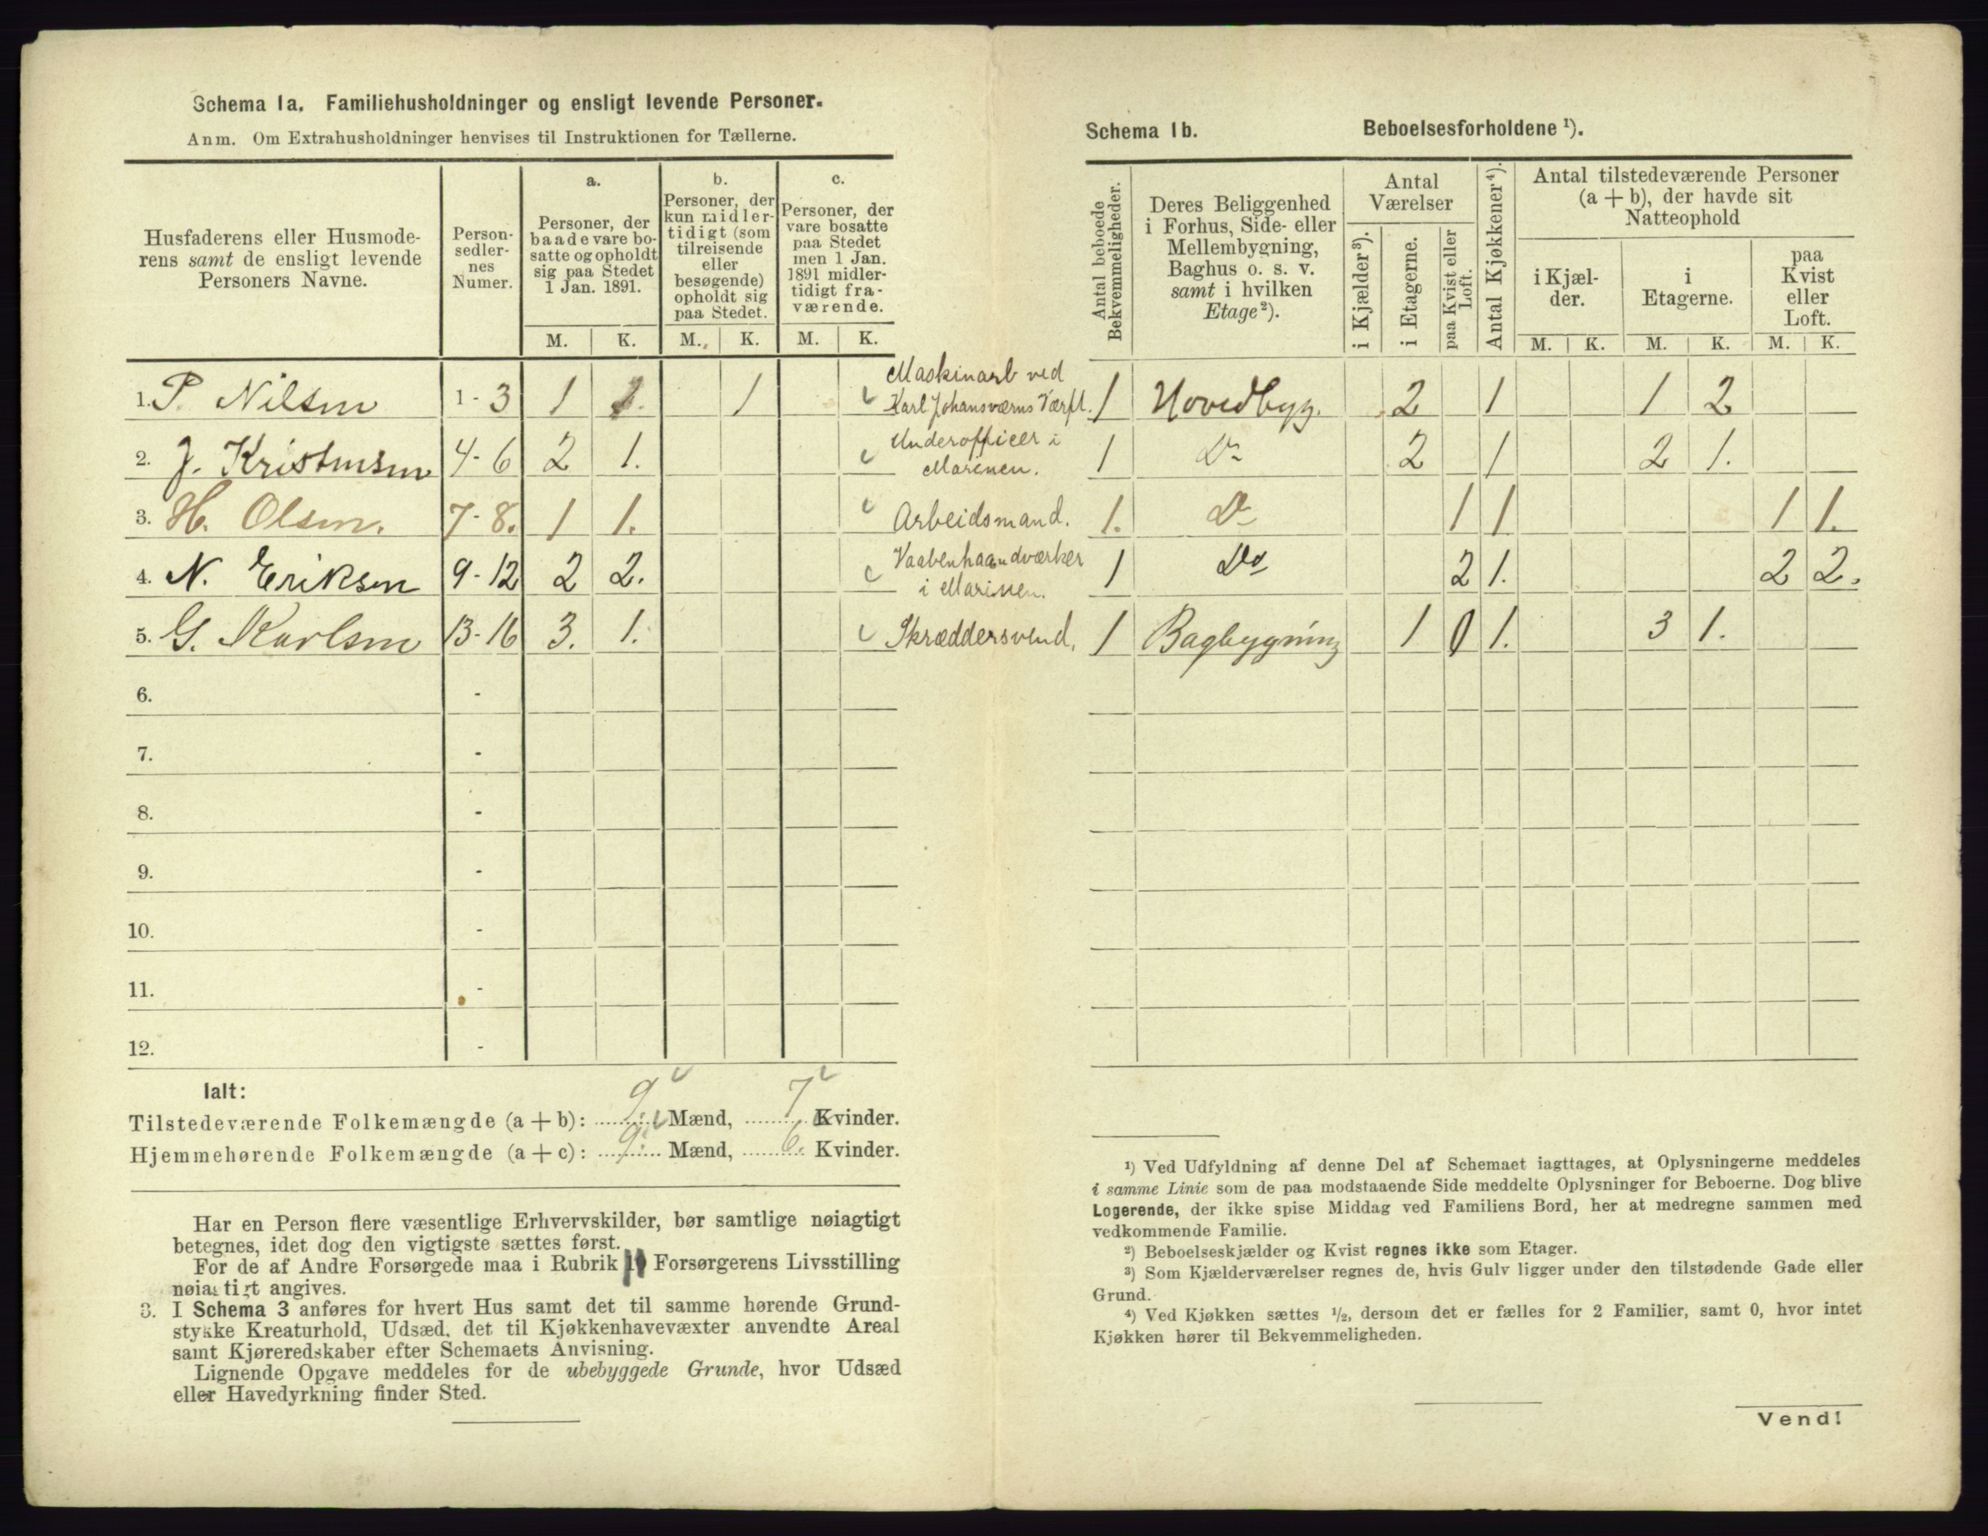 Schema 1a. Familiehusholdninger og ensligt levende Personer.
Anm. Om Extrahusholdninger henvises til Instruktionen for Tællerne.
Husfaderens eller Husmode-
rens samt de ensligt levende
Personers Navne.
Person-
sedler-
nes
Numer.
a.
Personer, der
baade vare bo-
satte og opholdt
sig paa Stedet
1 Jan. 1891.
b.
Personer, der
kun midler-
tidigt (som
tilreisende
eller
besøgende)
opholdt sig
paa Stedet.
c.
Personer, der
vare bosatte
paa Stedet
men 1 Jan.
1891 midler-
tidigt fra-
værende.
M. K. M. K. M. K.
1. P. Nilsen 1-3 1 1. 1 Maskinarb ved
Karl Johansværns Værft.
2. J. Kristensen 4-6 2 1. Underofficer i
Marinen.
3. H. Olsen. 7-8. 1 1. Arbeidsmand.
4. N. Eriksen 9-12 2 2. Vaabenhaandværker
i Marinen.
5. G. Karlsen 13-16 3. 1. Skræddersvend.
6. -
7. -
8. -
9. -
10. -
11. -
12. -
Ialt:
Tilstedeværende Folkemængde (a + b): 9 Mænd, 7 Kvinder.
Hjemmehørende Folkemængde (a + c): 9. Mænd, 6. Kvinder.
Har en Person flere væsentlige Erhvervskilder, bør samtlige nøiagtigt
betegnes, idet dog den vigtigste sættes først.
For de af Andre Forsørgede maa i Rubrik 10 Forsørgerens Livsstilling
nøiagtigt angives.
3. I Schema 3 anføres for hvert Hus samt det til samme hørende Grund-
stykke Kreaturhold, Udsæd, det til Kjøkkenhavevæxter anvendte Areal
samt Kjøreredskaber efter Schemaets Anvisning.
Lignende Opgave meddeles for de ubebyggede Grunde, hvor Udsæd
eller Havedyrkning finder Sted.
Schema 1b. Beboelsesforholdene ¹).
Antal beboede
Bekvemmeligheder.
Deres Beliggenhed
i Forhus, Side- eller
Mellembygning,
Baghus o. s. v.
samt i hvilken
Etage²).
Antal
Værelser
i Kjælder³).
i Etagerne.
paa Kvist eller
Loft.
Antal Kjøkkener⁴).
Antal tilstedeværende Personer
(a + b), der havde sit
Natteophold
i Kjæl-
der.
i
Etagerne.
paa
Kvist
eller
Loft.
M. K. M. K. M. K.
1 Hovedbyg. 2 1 1 2
1 Do 2 1 2 1.
1. Do 1 1 1 1.
1 Do 2 1. 2 2.
1 Bagbygning 1 0 1. 3 1.
¹) Ved Udfyldning af denne Del af Schemaet iagttages, at Oplysningerne meddeles
i samme Linie som de paa modstaaende Side meddelte Oplysninger for Beboerne. Dog blive
Logerende, der ikke spise Middag ved Familiens Bord, her at medregne sammen med
vedkommende Familie.
²) Beboelseskjælder og Kvist regnes ikke som Etager.
³) Som Kjælderværelser regnes de, hvis Gulv ligger under den tilstødende Gade eller
Grund.
⁴) Ved Kjøkken sættes ½, dersom det er fælles for 2 Familier, samt 0, hvor intet
Kjøkken hører til Bekvemmeligheden.
Vend!